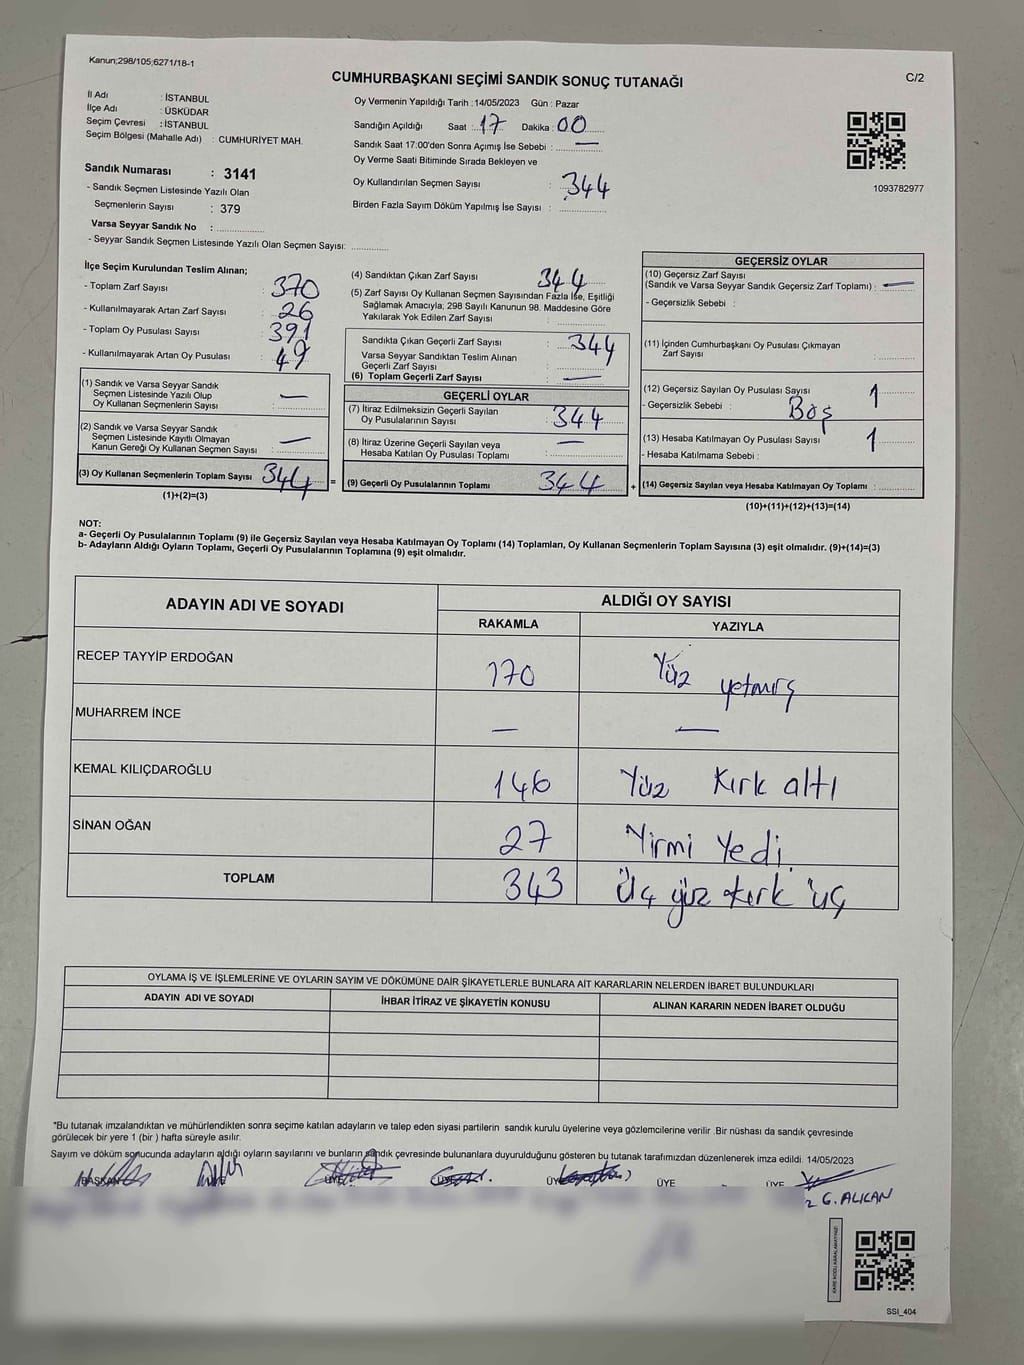 Kanun;298/105;6271/18-1
CUMHURBAŞKANI SEÇİMİ SANDIK SONUÇ TUTANAĞI
C/2
İl Adı : İSTANBUL
İlçe Adı : ÜSKÜDAR
Seçim Çevresi : İSTANBUL
Seçim Bölgesi (Mahalle Adı) : CUMHURİYET MAH.
Sandık Numarası : 3141
- Sandık Seçmen Listesinde Yazılı Olan
Seçmenlerin Sayısı : 379
Varsa Seyyar Sandık No :
- Seyyar Sandık Seçmen Listesinde Yazılı Olan Seçmen Sayısı:
Oy Vermenin Yapıldığı Tarih :14/05/2023 Gün : Pazar
Sandığın Açıldığı Saat : 17 Dakika : 00
Sandık Saat 17:00'den Sonra Açımış İse Sebebi : —
Oy Verme Saati Bitiminde Sırada Bekleyen ve
Oy Kullandırılan Seçmen Sayısı : 344
Birden Fazla Sayım Döküm Yapılmış İse Sayısı :
1093782977
İlçe Seçim Kurulundan Teslim Alınan;
- Toplam Zarf Sayısı : 370
- Kullanılmayarak Artan Zarf Sayısı : 26
- Toplam Oy Pusulası Sayısı : 391
- Kullanılmayarak Artan Oy Pusulası : 49
(1) Sandık ve Varsa Seyyar Sandık
Seçmen Listesinde Yazılı Olup
Oy Kullanan Seçmenlerin Sayısı : —
(2) Sandık ve Varsa Seyyar Sandık
Seçmen Listesinde Kayıtlı Olmayan
Kanun Gereği Oy Kullanan Seçmen Sayısı : —
(3) Oy Kullanan Seçmenlerin Toplam Sayısı 344 =
(1)+(2)=(3)
(4) Sandıktan Çıkan Zarf Sayısı : 344
(5) Zarf Sayısı Oy Kullanan Seçmen Sayısından Fazla İse, Eşitliği
Sağlamak Amacıyla, 298 Sayılı Kanunun 98. Maddesine Göre
Yakılarak Yok Edilen Zarf Sayısı :
Sandıkta Çıkan Geçerli Zarf Sayısı : 344
Varsa Seyyar Sandıktan Teslim Alınan
Geçerli Zarf Sayısı :
(6) Toplam Geçerli Zarf Sayısı : —
GEÇERLİ OYLAR
(7) İtiraz Edilmeksizin Geçerli Sayılan
Oy Pusulasının Sayısı : 344
(8) İtiraz Üzerine Geçerli Sayılan veya
Hesaba Katılan Oy Pusulası Toplamı : —
(9) Geçerli Oy Pusulalarının Toplamı 344 +
GEÇERSİZ OYLAR
(10) Geçersiz Zarf Sayısı
(Sandık ve Varsa Seyyar Sandık Geçersiz Zarf Toplamı) : —
- Geçersizlik Sebebi :
(11) İçinden Cumhurbaşkanı Oy Pusulası Çıkmayan
Zarf Sayısı :
(12) Geçersiz Sayılan Oy Pusulası Sayısı : 1
- Geçersizlik Sebebi : Boş
(13) Hesaba Katılmayan Oy Pusulası Sayısı : 1
- Hesaba Katılmama Sebebi :
(14) Geçersiz Sayılan veya Hesaba Katılmayan Oy Toplamı :
(10)+(11)+(12)+(13)=(14)
NOT:
a- Geçerli Oy Pusulalarının Toplamı (9) ile Geçersiz Sayılan veya Hesaba Katılmayan Oy Toplamı (14) Toplamları, Oy Kullanan Seçmenlerin Toplam Sayısına (3) eşit olmalıdır. (9)+(14)=(3)
b- Adayların Aldığı Oyların Toplamı, Geçerli Oy Pusulalarının Toplamına (9) eşit olmalıdır.
ADAYIN ADI VE SOYADI
ALDIĞI OY SAYISI
RAKAMLA YAZIYLA
RECEP TAYYİP ERDOĞAN 170 Yüz yetmiş
MUHARREM İNCE — —
KEMAL KILIÇDAROĞLU 146 Yüz Kırk altı
SİNAN OĞAN 27 Yirmi Yedi.
TOPLAM 343 Üç yüz kırk üç
OYLAMA İŞ VE İŞLEMLERİNE VE OYLARIN SAYIM VE DÖKÜMÜNE DAİR ŞİKAYETLERLE BUNLARA AİT KARARLARIN NELERDEN İBARET BULUNDUKLARI
ADAYIN ADI VE SOYADI İHBAR İTİRAZ VE ŞİKAYETİN KONUSU ALINAN KARARIN NEDEN İBARET OLDUĞU
*Bu tutanak imzalandıktan ve mühürlendikten sonra seçime katılan adayların ve talep eden siyasi partilerin sandık kurulu üyelerine veya gözlemcilerine verilir .Bir nüshası da sandık çevresinde
görülecek bir yere 1 (bir ) hafta süreyle asılır.
Sayım ve döküm sonucunda adayların aldığı oyların sayılarını ve bunların sandık çevresinde bulunanlara duyurulduğunu gösteren bu tutanak tarafımızdan düzenlenerek imza edildi. 14/05/2023
BAŞKAN ÜYE ÜYE ÜYE ÜYE
G. ALICAN
KARE KODU KARALAMAYINIZ!
SSI_404